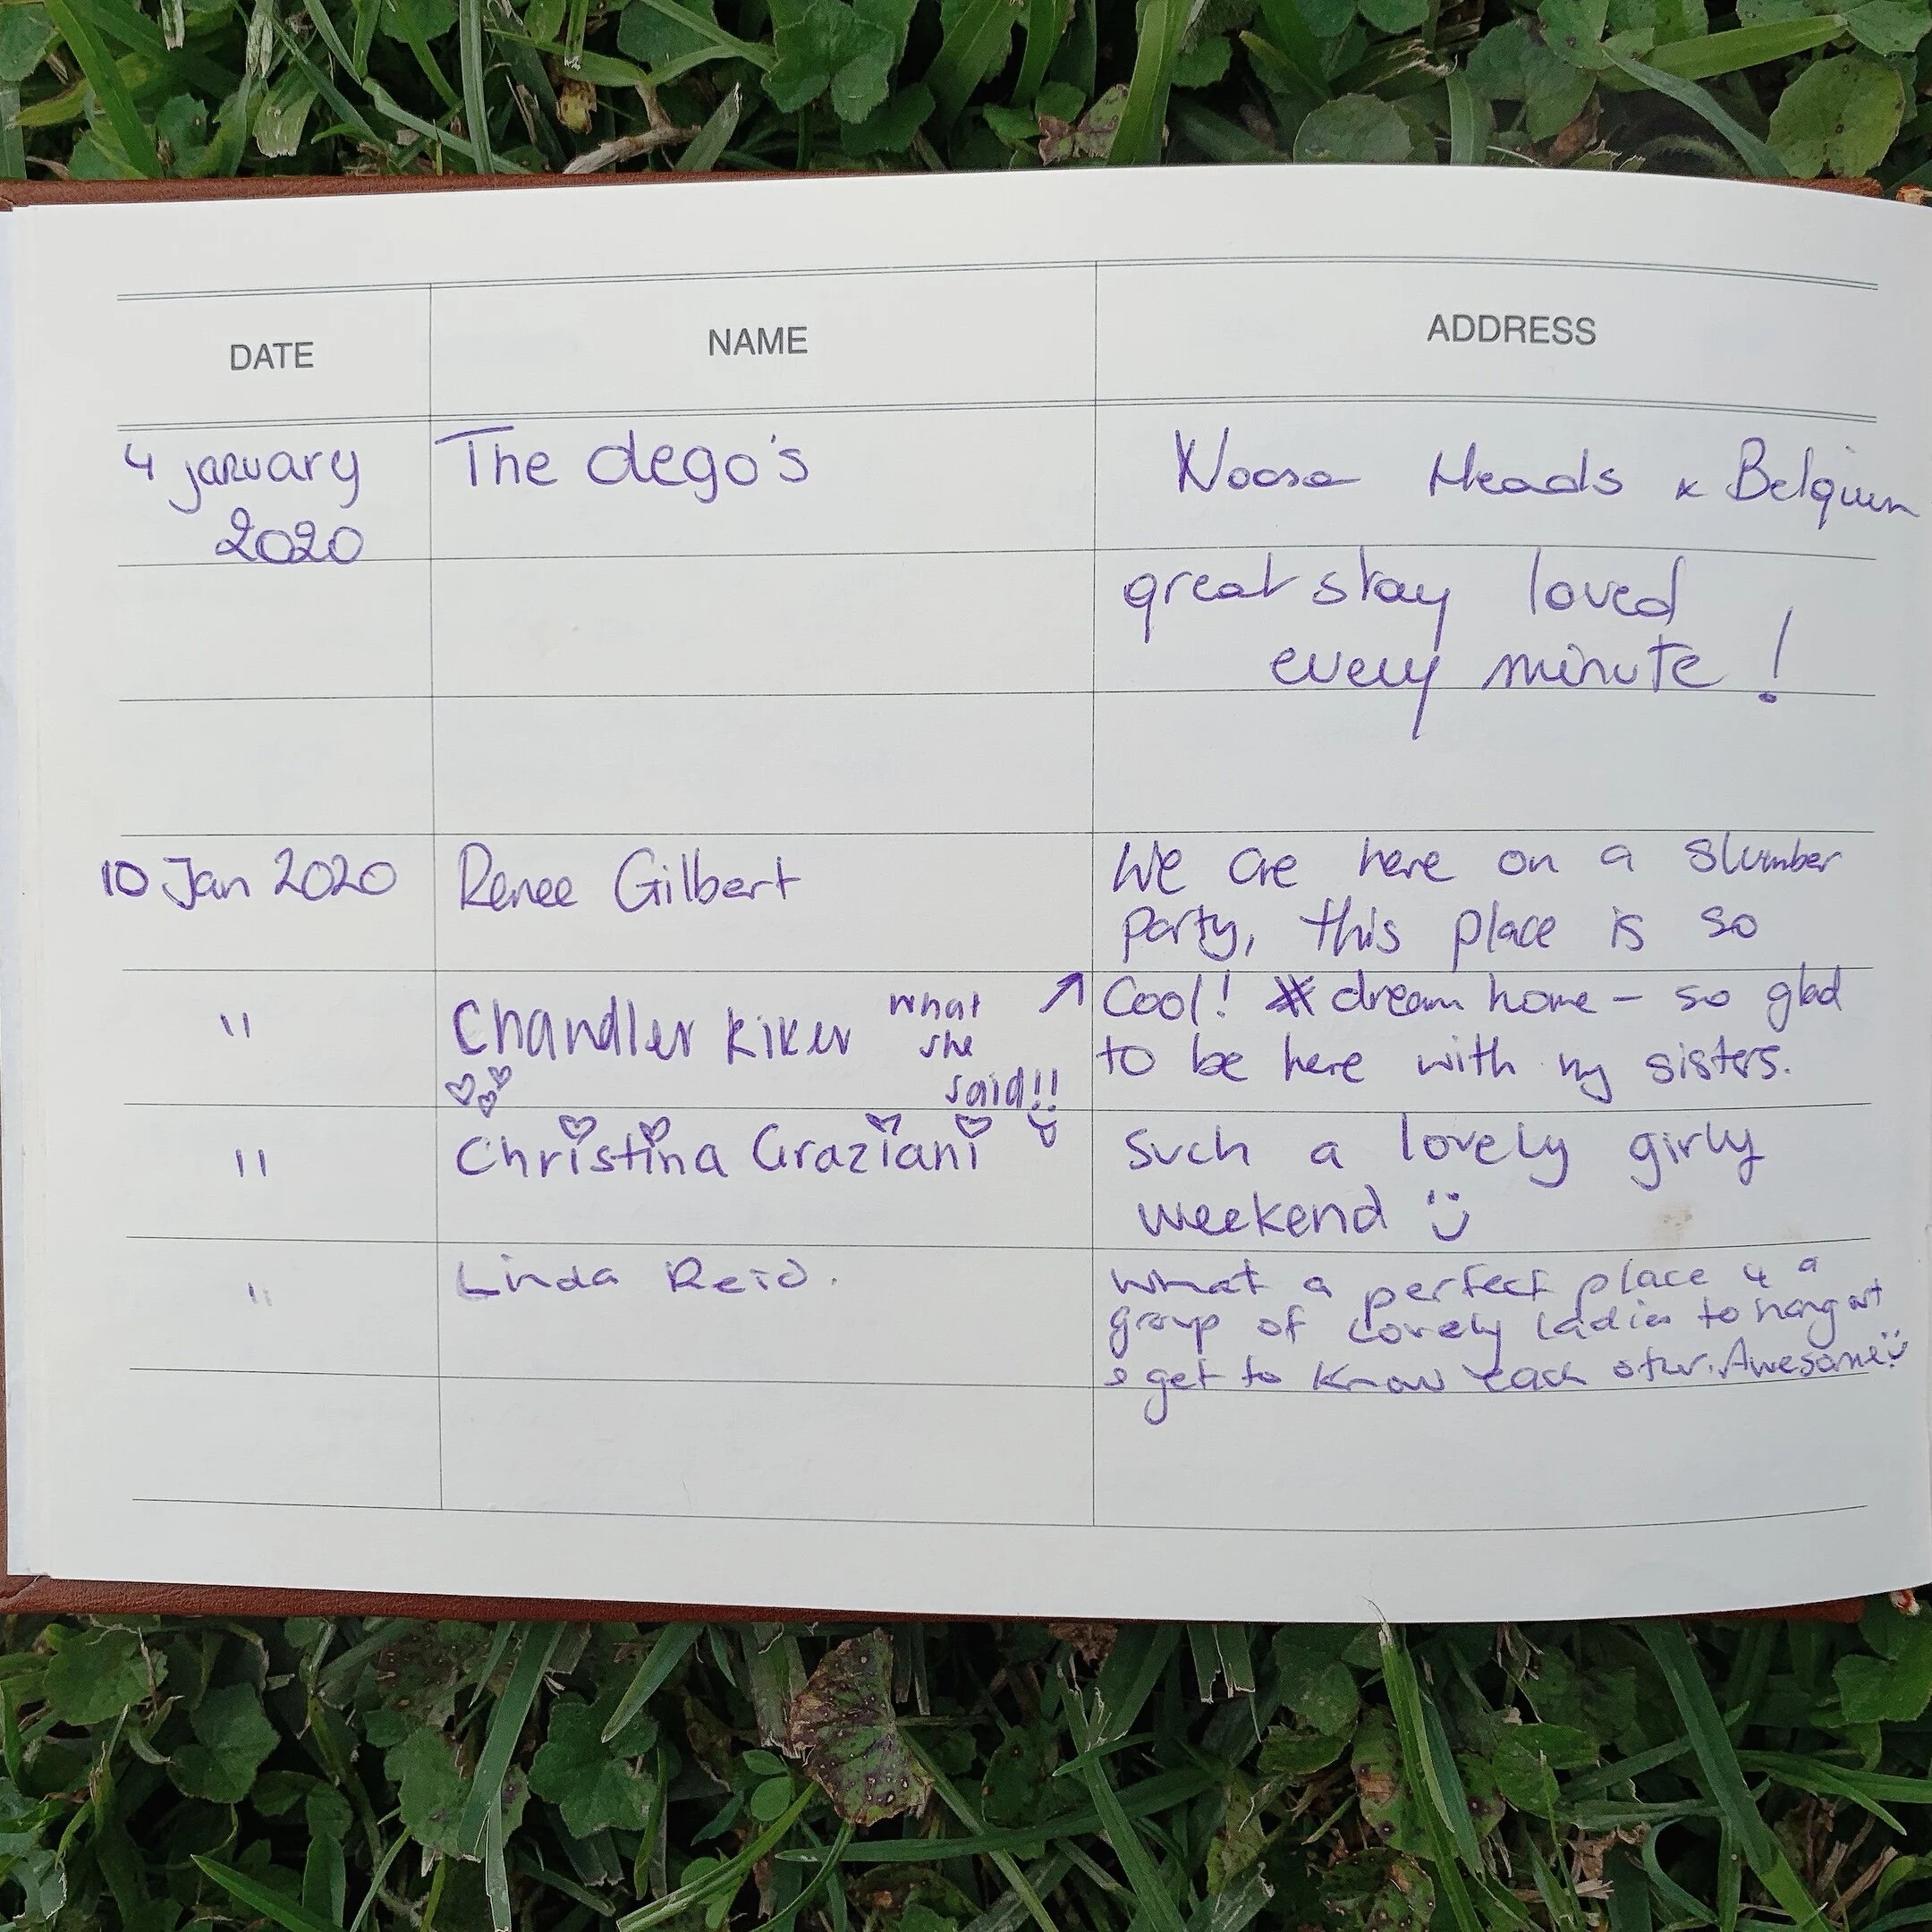 DATE NAME ADDRESS
4 january The dego's Noosa Heads x Belgium
2020
great stay loved
every minute!
10 Jan 2020 Renee Gilbert We are here on a slumber
party, this place is so
" Chandler Kiker what she said!! ↗ Cool! # dream home - so glad
to be here with my sisters.
" Christina Graziani such a lovely girly
weekend :)
" Linda Reid. What a perfect place 4 a
group of lovely ladies to hang out
& get to know each other. Awesome! :)